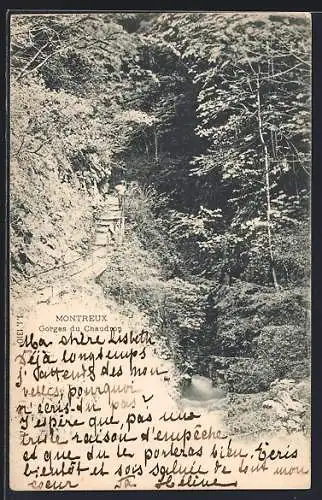 MONTREUX
Gorges du Chaudron
Ma chère Lisbeth
Déjà longtemps
j'attends des nou
velles, pourquoi
n'écris-tu pas?
J'espère que, pas une
triste raison t'empêche
et que du te porteras bien. Ecris
bientôt et sois saluée de tout mon
coeur ta Hélène